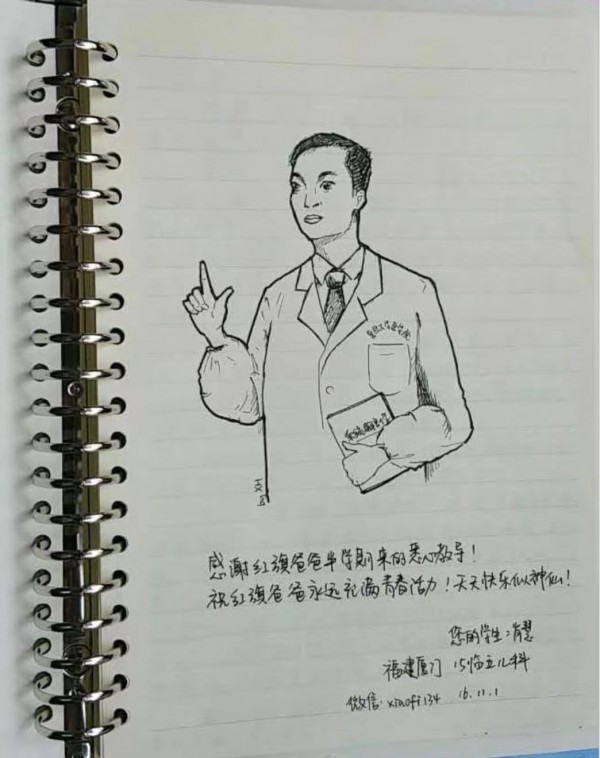 感谢红旗爸爸半学期来的悉心教导！
祝红旗爸爸永远充满青春活力！天天快乐似神仙！
您的学生：肖慧
福建厦门 15临五儿科
微信：xiaofi134 16.11.1